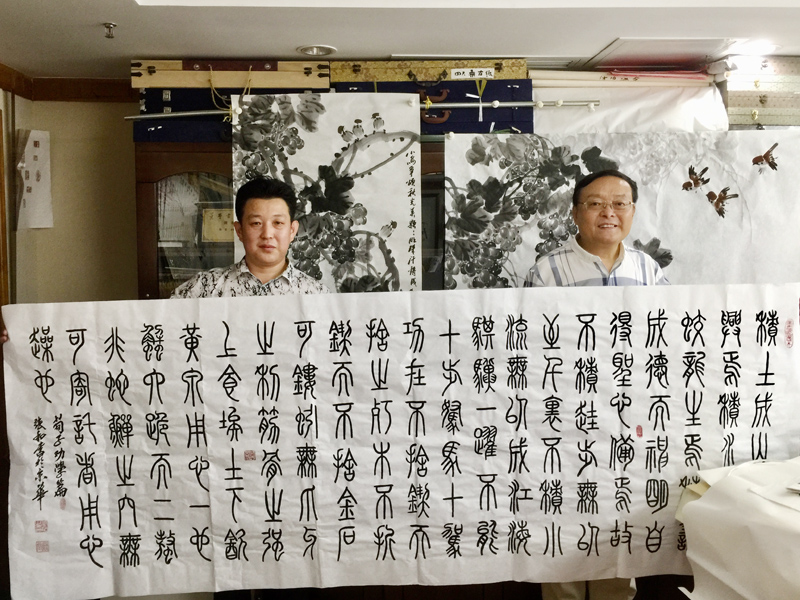 積土成山
興焉積水
蛟龍生焉積善
成德而神明自
得聖心備焉故
不積跬步無以
至千里不積小
流無以成江海
騏驥一躍不能
十步駑馬十駕
功在不捨鍥而
捨之朽木不折
鍥而不捨金石
可鏤蚓無爪牙
之利筋骨之強
上食埃土下飲
黃泉用心一也
蟹六跪而二螯
非蛇蟬之穴無
可寄託者用心
躁也
荀子劝學篇
書於京華